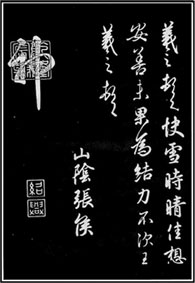 羲之頓首快雪時晴佳想
安善未果為結力不次王
羲之頓首
山陰張侯
神